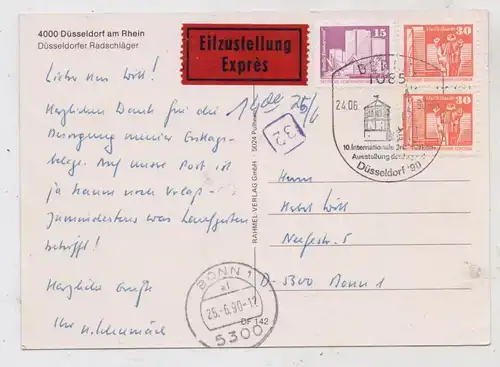 4000 Düsseldorf am Rhein
Düsseldorfer Radschläger
Eilzustellung
Exprès
15
30
30
BERLIN
1085
24.06.
10. Internationale
Ausstellung
Düsseldorf '90
25/6
32
Lieber Herr Witt!
Herzlichen Dank für die
Besorgung meiner Erstlags-
belege. Auf unsere Post ist
ja kaum noch Verlaß -
zumindestens was Laufzeiten
betrifft!
Herzliche Grüße
Ihr
RAHMEL-VERLAG GmbH · 5024 Pulheim
DF 142
Herrn
Witt
5
D-5300 Bonn 1
BONN 1
al
25.-6.90-12
5300